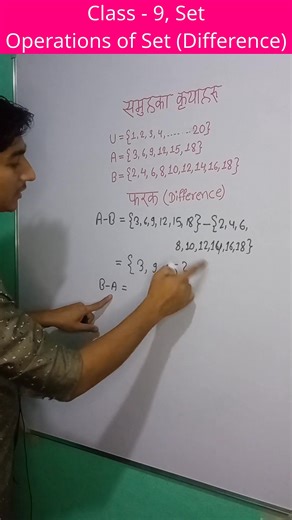 Class - 9, Set
Operations of Set (Difference)
समूहका क्रियाहरू
U = {1, 2, 3, 4, ...... 20}
A = {3, 6, 9, 12, 15, 18}
B = {2, 4, 6, 8, 10, 12, 14, 16, 18}
फरक (Difference)
A-B = {3, 6, 9, 12, 15, 18} - {2, 4, 6,
8, 10, 12, 14, 16, 18}
= {3, 9,
B-A =